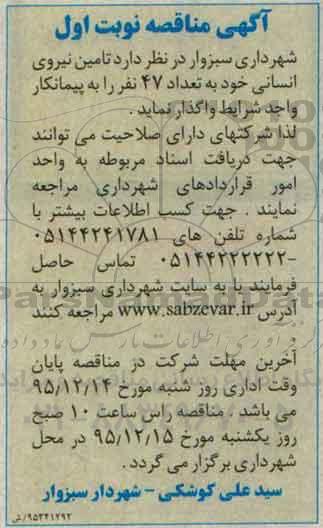 آگهی مناقصه نوبت اول
شهرداری سبزوار در نظر دارد تامین نیروی
انسانی خود به تعداد ۴۷ نفر را به پیمانکار
واجد شرایط واگذار نماید .
لذا شرکتهای دارای صلاحیت می توانند
جهت دریافت اسناد مربوطه به واحد
امور قراردادهای شهرداری مراجعه
نمایند . جهت کسب اطلاعات بیشتر با
شماره تلفن های ۰۵۱۴۴۲۴۱۷۸۱
-۰۵۱۴۴۲۲۲۲۲۲ تماس حاصل
فرمایند یا به سایت شهرداری سبزوار به
آدرس www.sabzevar.ir مراجعه کنند
آخرین مهلت شرکت در مناقصه پایان
وقت اداری روز شنبه مورخ ۹۵/۱۲/۱۴
می باشد . مناقصه راس ساعت ۱۰ صبح
روز یکشنبه مورخ ۹۵/۱۲/۱۵ در محل
شهرداری برگزار می گردد .
سید علی کوشکی - شهردار سبزوار
۹۵۳۴۱۲۹۲/ش